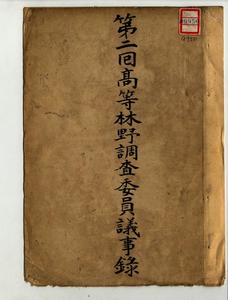 第二回高等林野調査委員議事錄